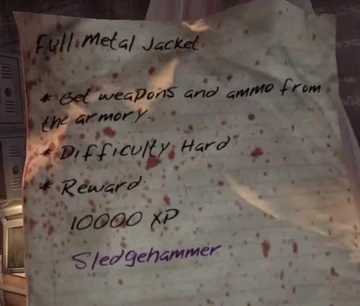 Full Metal Jacket
* Get weapons and ammo from
the armory.
* Difficulty Hard
* Reward
10000 XP
Sledgehammer